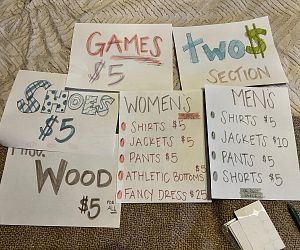 GAMES
$5
two$
SECTION
SHOES
$5
MISC.
WOOD
$5
FOR ALL
WOMEN'S
SHIRTS $5
JACKETS $5
PANTS $5
ATHLETIC BOTTOMS
$5
FANCY DRESS $25
MEN'S
SHIRTS $5
JACKETS $10
PANTS $5
SHORTS $5